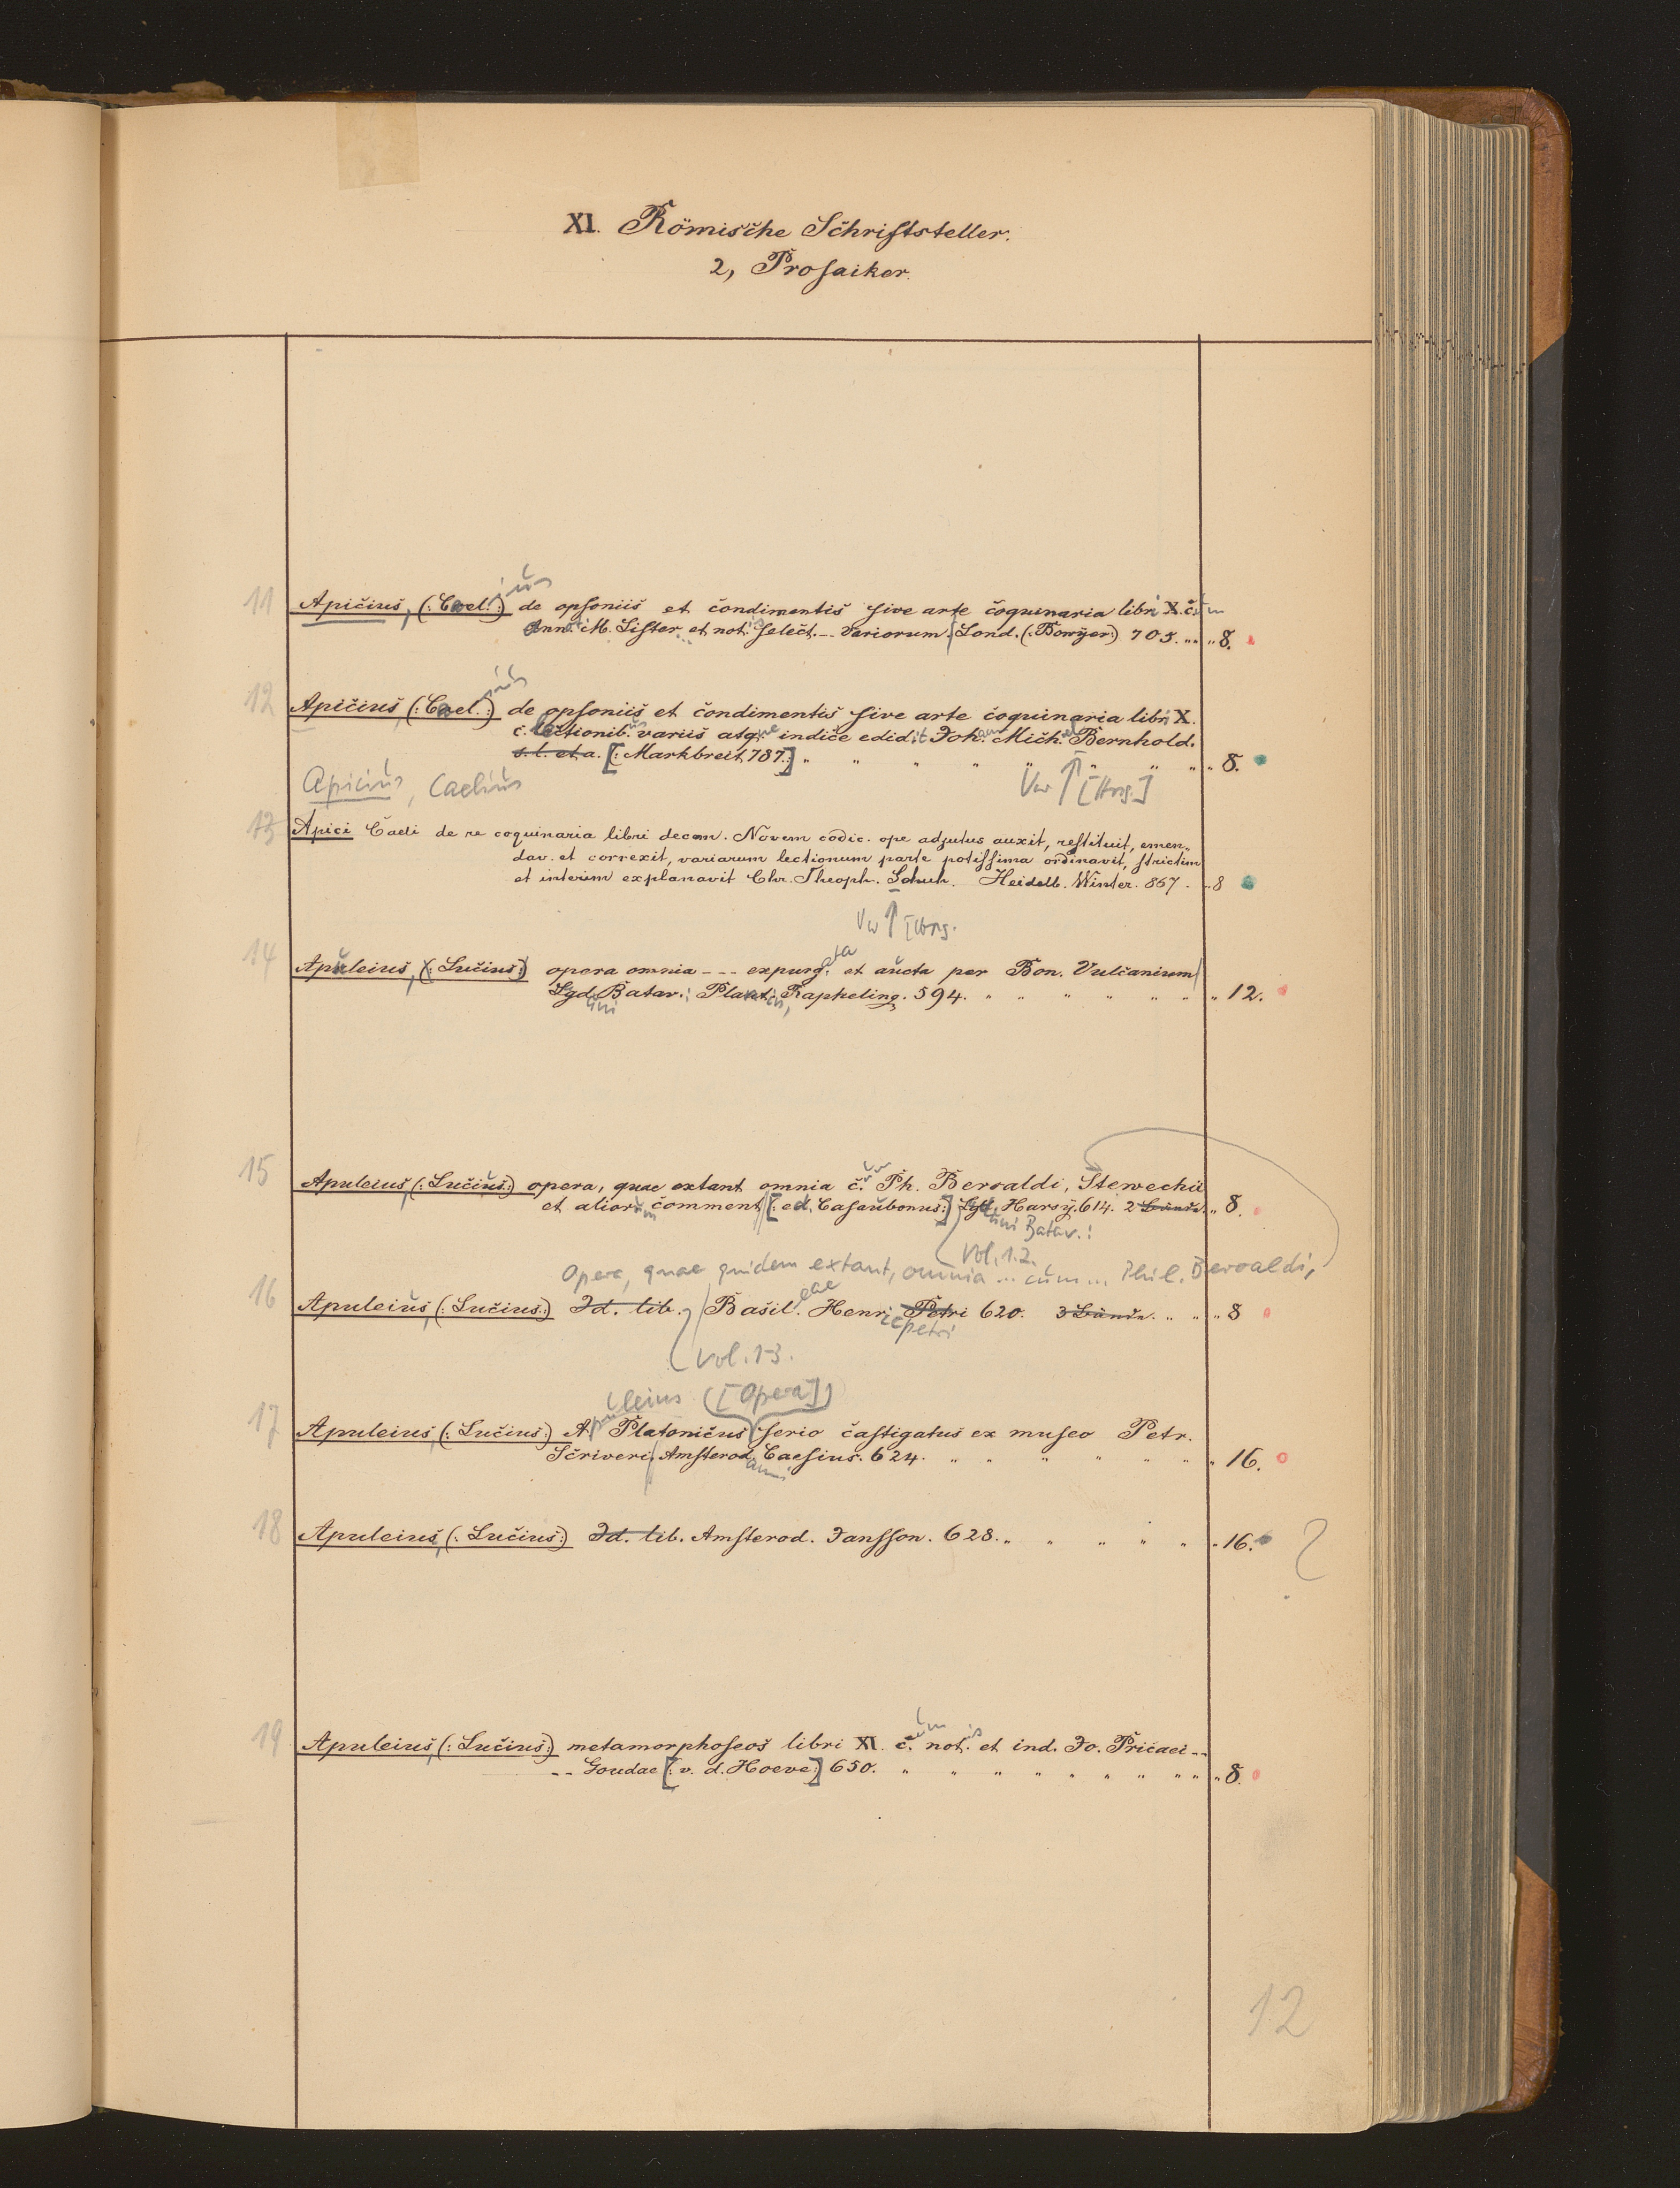 XI. Römische Schriftsteller.
2, Prosaiker.
11 Apicius, (: Cael. :) ius de opsoniis et condimentis sive arte coquinaria libri X. c. um
Ann. M. Lister et not. select. -- variorum. Lond. (: Bowyer :) 705. " " 8.
12 Apicius (: Cael. :) ius de opsoniis et condimentis sive arte coquinaria libri X.
c. lectionib. us variis atq. ue indice edidit Joh. ann Mich. ael Bernhold.
s. l. et a. [: Markbreit 787 :] " " " " " " " " 8.
Apicius, Caelius Vw ↑ [Hrsg.]
13 Apici Caeli de re coquinaria libri decem. Novem codic. ope adjutus auxit, restituit, emen„
dav. et correxit, variarum lectionum parte potissima ordinavit, strictim
et interim explanavit Chr. Theoph. Schuch. Heidelb. Winter. 867. " 8
Vw ↑ [Hrsg.
14 Apuleius, (: Lucius :) opera omnia --- expurg. ata et aucta per Bon. Vulcanium
Lgd. uni Batav.: Plant. Rapheling. 594. " " " " " " " 12.
15 Apuleius, (: Lucius :) opera, quae extant omnia c. Ph. Beroaldi, Stewechii
et alior. um comment [: ed. Casaubonus :] Lgd. Harsy. 614. 2 Bände. " 8.
uni Batav.:
Vol. 1.2.
Opera, quae quidem extant, omnia ... cum ... Phil. Beroaldi,
16 Apuleius, (: Lucius :) Id. lib. Basil. eae Henr. Petri 620. 3 Bände. " " " 8
icpetri
Vol. 1-3.
uleius ([Opera])
17 Apuleius, (: Lucius :) A. Platonicus serio castigatus ex museo Petr.
Scriveri. Amsterod. ami Caesius. 624. " " " " " " " 16.
18 Apuleius, (: Lucius :) Id. lib. Amsterod. Jansson. 628. " " " " " " 16. ?
19 Apuleius, (: Lucius :) metamorphoseos libri XI. c. um not. is et ind. Jo. Pricaei --
-- Goudae [: v. d. Hoeve :] 650. " " " " " " " " " 8.
12